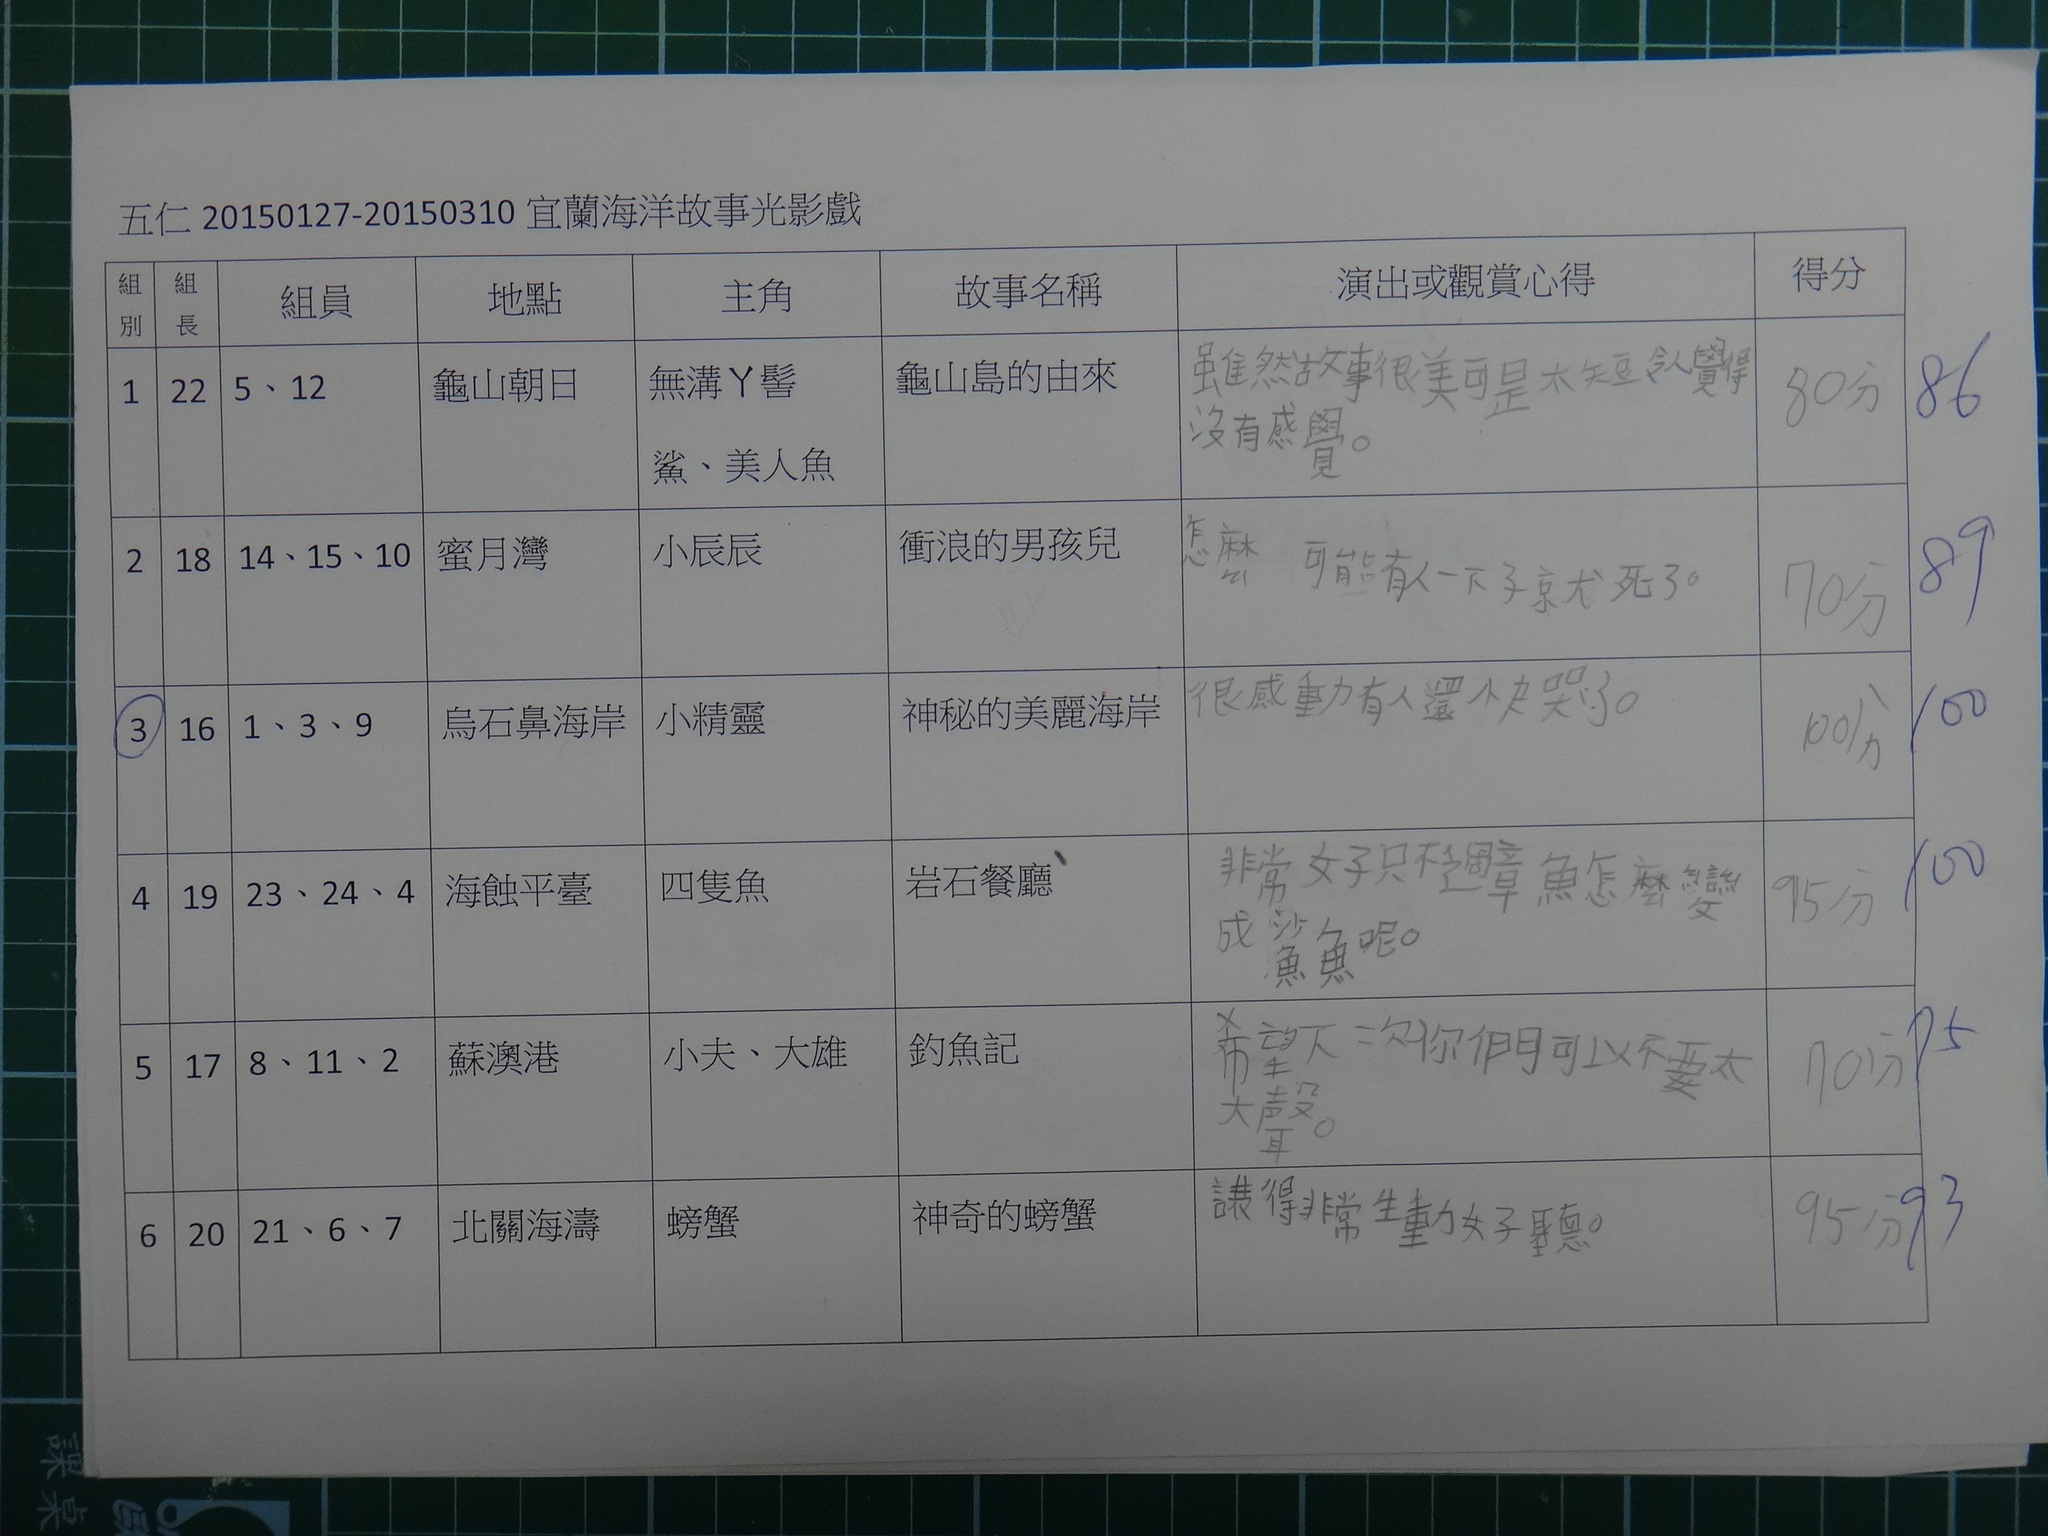 五仁 20150127-20150310 宜蘭海洋故事光影戲
組別 組長 組員 地點 主角 故事名稱 演出或觀賞心得 得分
1 22 5、12 龜山朝日 無溝丫髻鯊、美人魚 龜山島的由來 雖然故事很美可是太短令人覺得沒有感覺。 80分 86
2 18 14、15、10 蜜月灣 小辰辰 衝浪的男孩兒 怎麼 可能有人一下子就死了。 70分 89
3 16 1、3、9 烏石鼻海岸 小精靈 神秘的美麗海岸 很感動有人還快哭了。 100分 100
4 19 23、24、4 海蝕平臺 四隻魚 岩石餐廳 非常好只不過章魚怎麼變成鯊魚呢。 95分 100
5 17 8、11、2 蘇澳港 小夫、大雄 釣魚記 希望下次你們可以不要太大聲。 70分 75
6 20 21、6、7 北關海濤 螃蟹 神奇的螃蟹 講得非常生動好聽。 95分 93
課桌